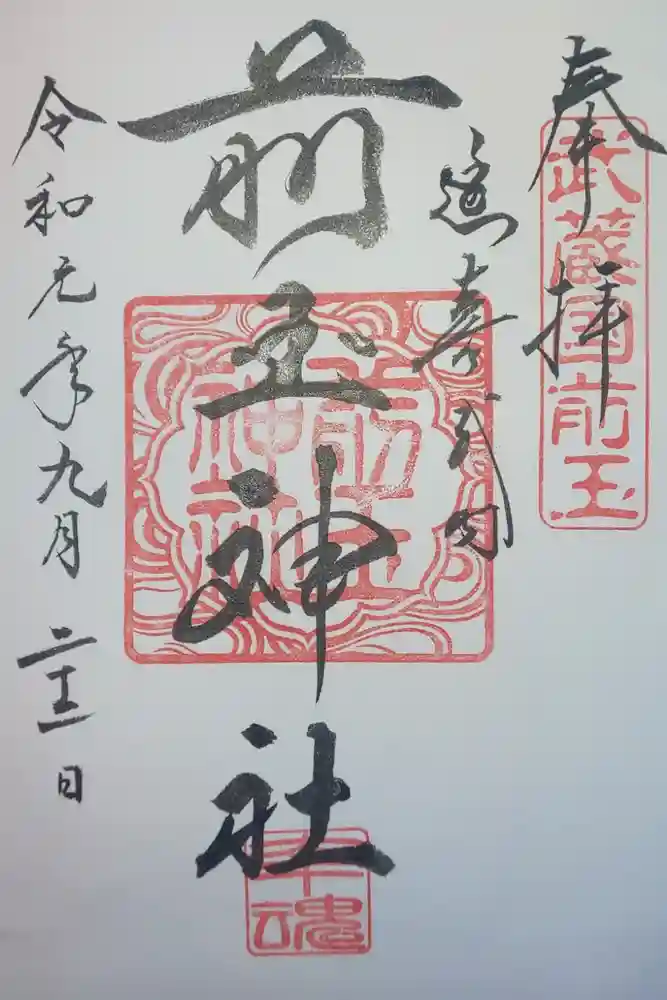 奉拝
武蔵国前玉
延喜式内
前玉神社
前玉
神社
幸魂
令和元年九月 日